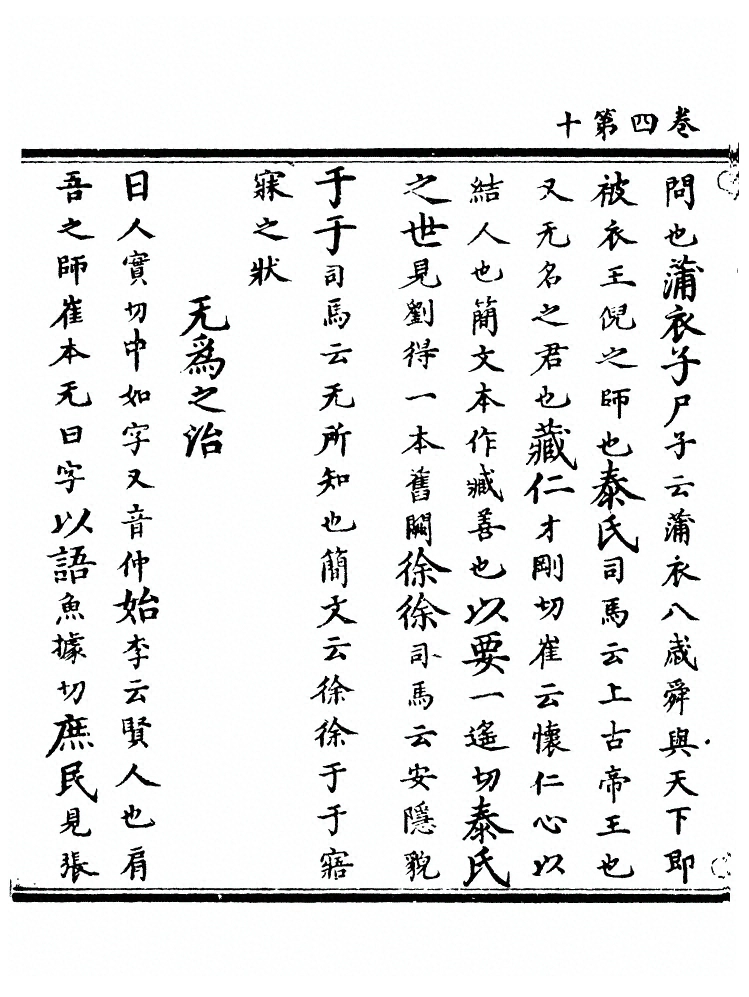 卷四第十
問也蒲衣子尸子云蒲衣八歳舜與天下即
被衣王倪之師也泰氏司馬云上古帝王也
又无名之君也藏仁才剛切崔云懷仁心以
結人也簡文本作臧善也以要一遙切泰氏
之世見劉得一本舊闕徐徐司馬云安隱貌
于于司馬云无所知也簡文云徐徐于于寤
寐之狀
无爲之治
日人實切中如字又音仲始李云賢人也肩
吾之師崔本无日字以語魚據切庶民見張